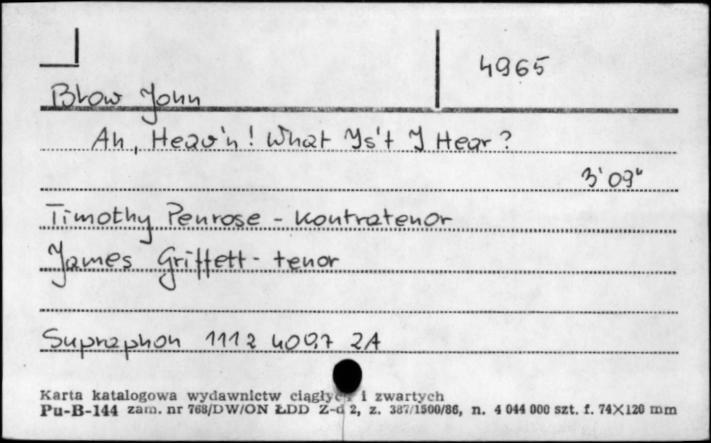 4965
Blow John
Ah, Heav'n! What Ys't Y Hear?
3'09"
Timothy Penrose - kontratenor
James Griffett - tenor
Supraphon 1112 4007 2A
Karta katalogowa wydawnictw ciągłych i zwartych
Pu-B-144 zam. nr 768/DW/ON ŁDD Z-d 2, z. 387/1500/86, n. 4 044 000 szt. f. 74X120 mm